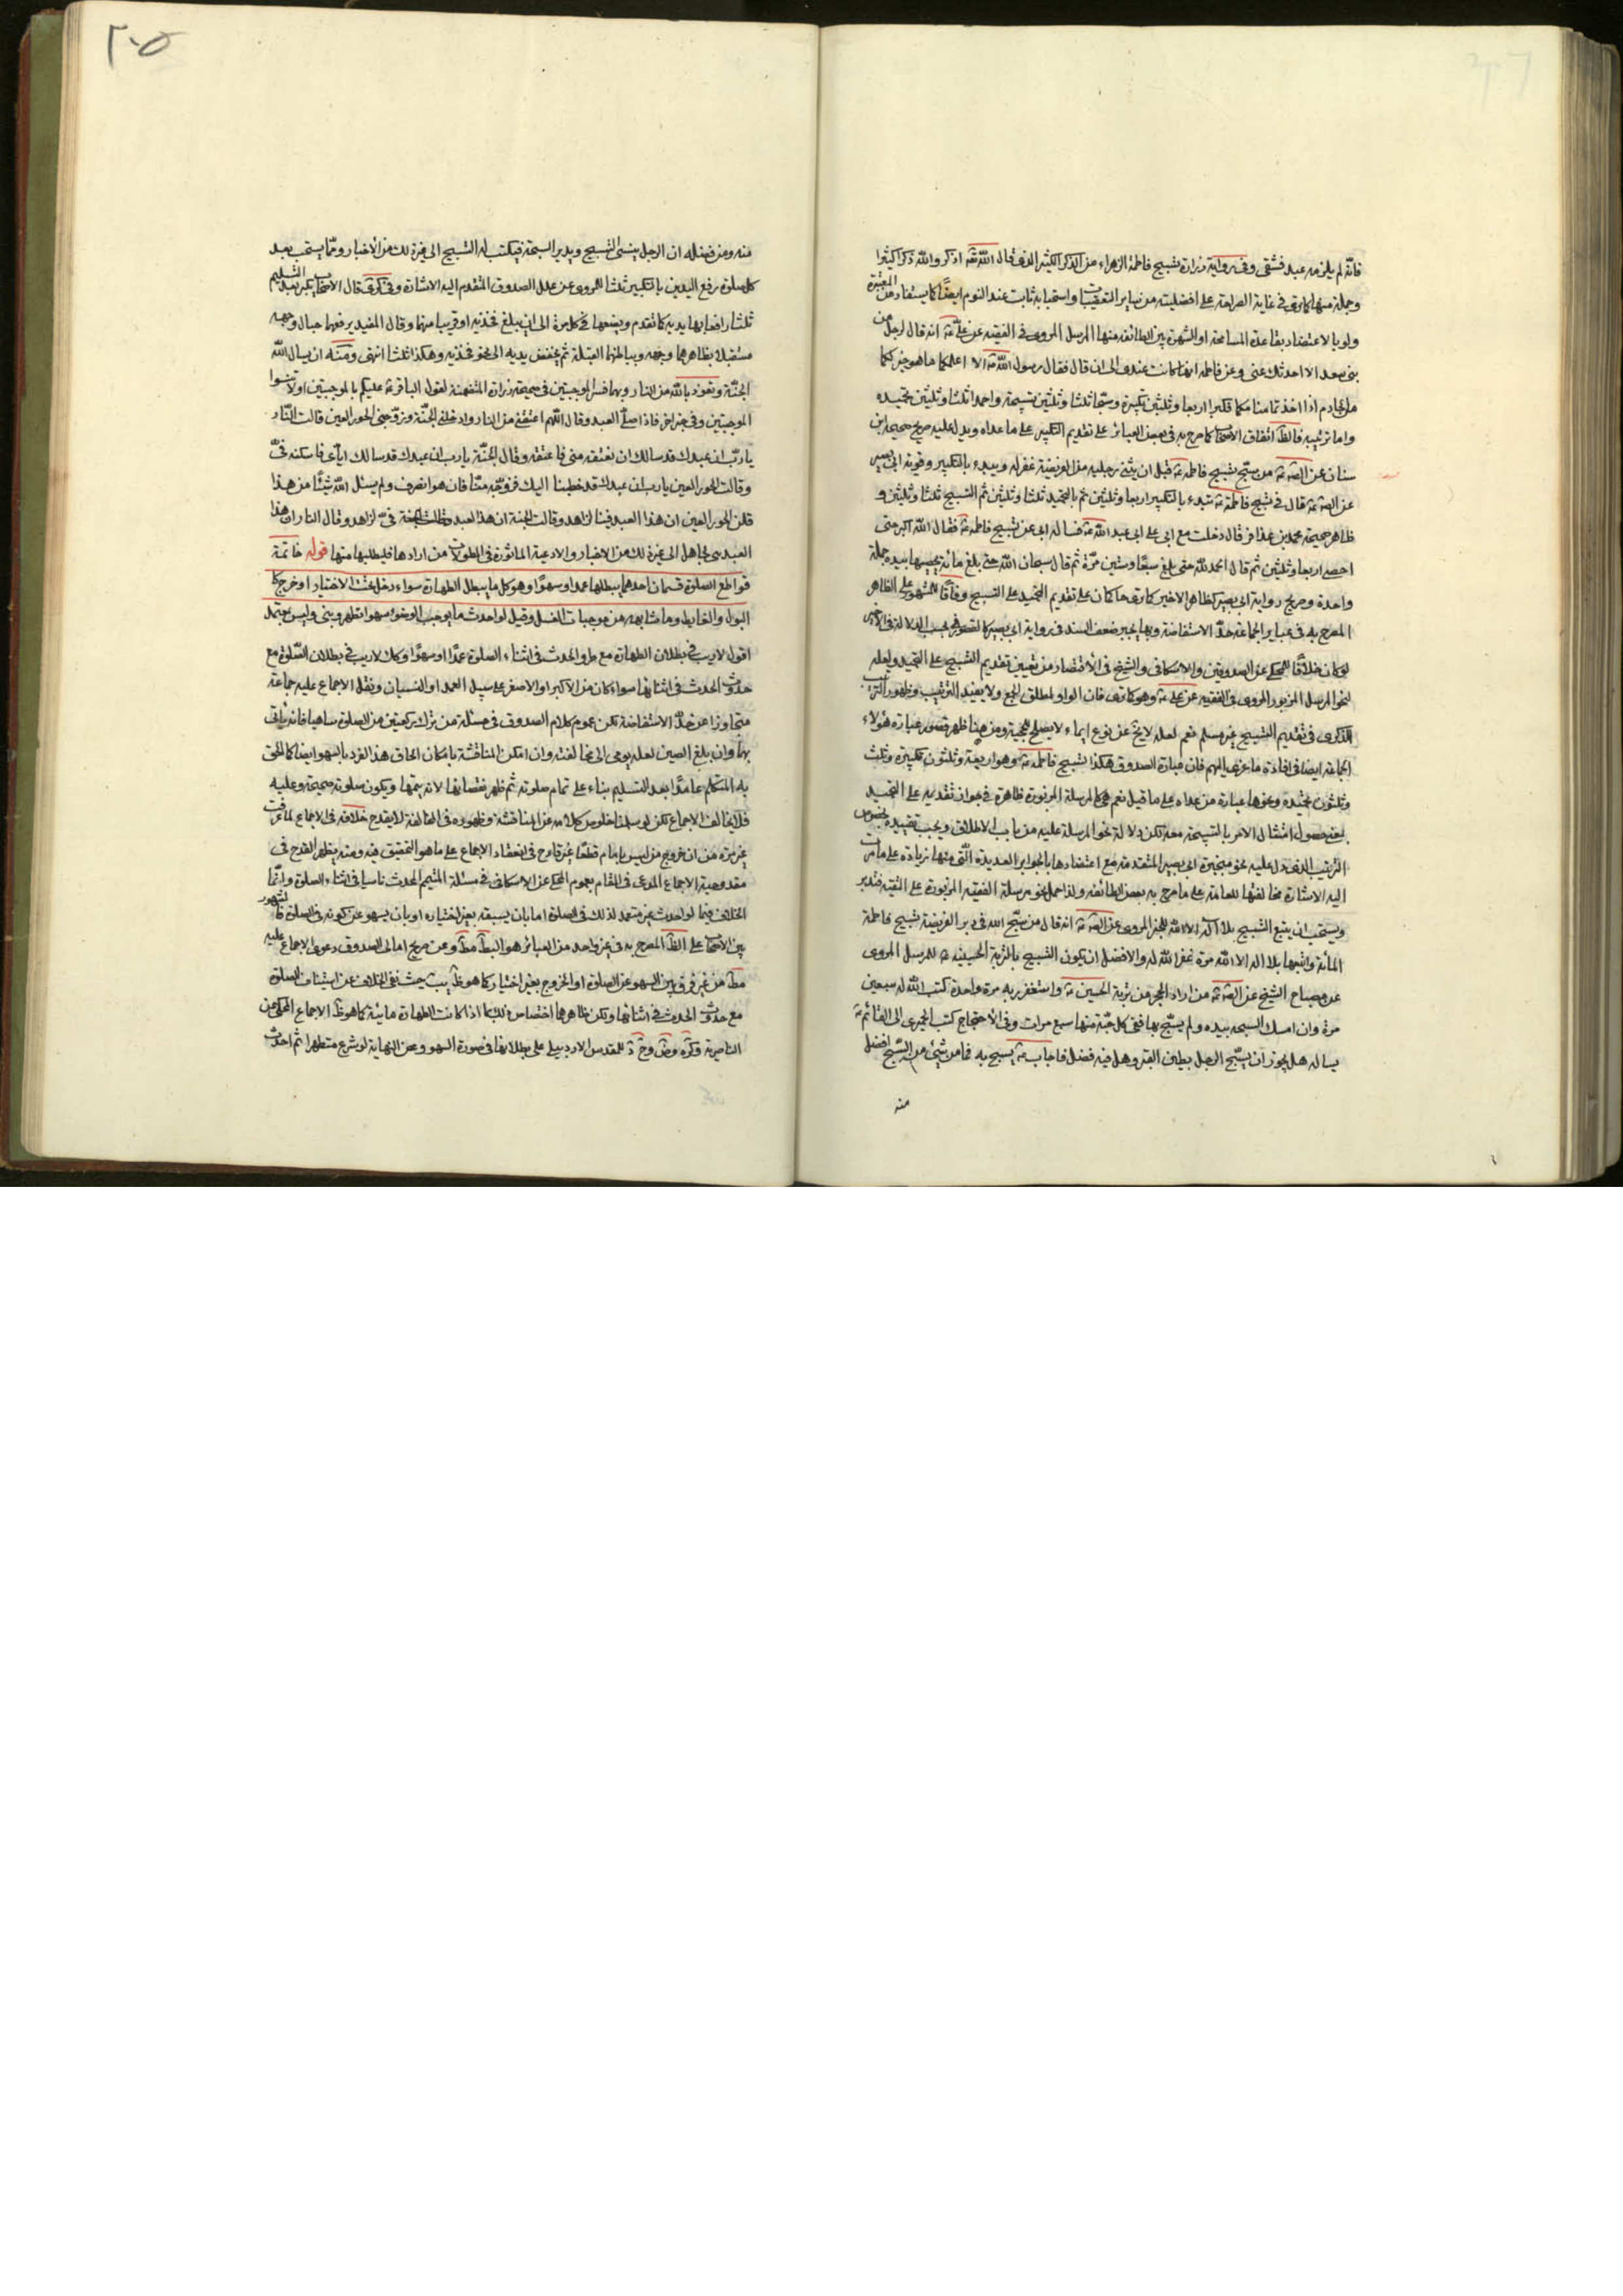 فانه لم يلزمه عبد فشقى وفى رواية زرارة تسبيح فاطمة الزهراء من الذكر الكثير الذى قال الله تع اذكروا الله ذكرا كثيرا
وجملة منها كما ترى فى غاية الصراحة على افضليته من ساير التعقيبات واستحبابه ثابت عند النوم ايضا كما يستفاد من المعتبرة
ولو بالاعتضاد بقاعدة المسامحة او الشهرة بين الطائفة منها المرسل المروى فى الفقيه عن على ع انه قال لرجل من
بنى سعد الا احدثك عنى وعن فاطمة انها كانت عندى الى ان قال فقال رسول الله ص الا اعلمكما ما هو خير لكما
من الخادم اذا اخذتما منامكما فكبرا اربعا وثلثين تكبيرة وسبحا ثلثا وثلثين تسبيحة واحمدا ثلثا وثلثين تحميدة
واما ترتيبه فالظ اتفاق الاصحاب كما صرح به فى بعض العبائر على تقديم التكبير على ما عداه ويدل عليه صريح صحيحة ابن
سنان عن الص ع من سبح تسبيح فاطمة ع قبل ان يثنى رجليه من الفريضة غفر له ويبدء بالتكبير وقوية ابى بصير
عن الص ع قال فى تسبيح فاطمة ع تبدء بالتكبير اربعا وثلثين ثم بالتحميد ثلثا وثلثين ثم التسبيح ثلثا وثلثين و
ظاهر صحيحة محمد بن عذافر قال دخلت مع ابى على ابى عبد الله ع فساله ابى عن تسبيح فاطمة ع فقال الله اكبر حتى
احصى اربعا وثلثين ثم قال الحمد لله حتى بلغ سبعا وستين مرة ثم قال سبحان الله حتى بلغ مائة يحصيها بيده جملة
واحدة وصريح رواية ابى بصير كظاهر الاخير كما ترى حاكمان على تقديم التحميد على التسبيح وفاقا للمشهور على الظاهر
المصرح به فى عباير الجماعة حد الاستفاضة وبها يجبر ضعف السند فى رواية ابى بصير كالقصور بحسب الدلالة فى الاخير
لو كان خلافا للمحكى عن الصدوقين والاسكافى والشيخ فى الاقتصاد من تعيين تقديم التسبيح على التحميد ولعله
لنحو المرسل المزبور المروى فى الفقيه عن على ع وهو كما ترى فان الواو لمطلق الجمع ولا يفيد الترتيب وظهور الترتيب
الذكرى فى تقديم التسبيح غير مسلم نعم لعله لا يخ عن نوع ايماء لا يصلح للحجية ومن هنا ظهر قصور عبارة هؤلاء
الجماعة ايضا فى افادة ما عزى اليهم فان عبارة الصدوق هكذا تسبيح فاطمة ع وهو اربعة وثلثون تكبيرة وثلث
وثلثون تحميدة ونحوها عبارة من عداه على ما قيل نعم هى كالمرسلة المزبورة ظاهرة فى جواز تقديمه على التحميد
بمعنى حصول امتثال الامر بالتسبيحة معه لكن دلالة نحو المرسلة عليه من باب الاطلاق ويجب تقييده بخصوص
الترتيب الذى دل عليه نحو منجبرة ابى بصير المتقدمة مع اعتضادها بالجوابر العديدة التى منها زيادة على ما مرت
اليه الاشارة مخالفتها للعامة على ما صرح به بعض الطائفة ولذا حمل نحو مرسلة الفقيه المزبورة على التقية فتدبر
ويستحب ان يتبع التسبيح بلا اله الا الله للخبر المروى عن الص ع انه قال من سبح الله فى دبر الفريضة تسبيح فاطمة
المائة واتبعها بلا اله الا الله مرة غفر الله له والافضل ان يكون التسبيح بالتربة الحسينية للمرسل المروى
عن مصباح الشيخ عن الص ع من ادار الحجر من تربة الحسين ع واستغفر به مرة واحدة كتب الله له سبعين
مرة وان امسك السبحة بيده ولم يسبح بها ففى كل حبة منها سبع مرات وفى الاحتجاج كتب الحميرى الى القائم ع
يساله هل يجوز ان يسبح الرجل بطين القبر وهل فيه فضل فاجاب ع يسبح به فما من شىء من السبح افضل
منه
٢٠٥
منه ومن فضله ان الرجل ينسى التسبيح ويدير السبحة فيكتب له التسبيح الى غير ذلك من الاخبار ومما يستحب بعد
كل صلوة رفع اليدين بالتكبير ثلثا للمروى عن علل الصدوق المتقدم اليه الاشارة وفى كرى قال الاصحاب يكبر بعد التسليم
ثلثا رافعا بها يديه كما تقدم ويضعها فى كل مرة الى ان يبلغ فخذيه او قريبا منهما وقال المفيد يرفعهما حيال وجهه
مستقبلا بظاهرهما وجهه وبباطنهما القبلة ثم يخفض يديه الى نحو فخذيه وهكذا ثلثا انتهى ومنه ان يسال الله
الجنة وتعوذ بالله من النار وبهما فسر الموجبتين فى صحيحة زرارة المتضمنة لقول الباقر ع عليكم بالموجبتين او لا تنسوا
الموجبتين وفى خبر اخر فاذا صلى العبد وقال اللهم اعتقنى من النار وادخلنى الجنة وزوجنى الحور العين قالت النار
يا رب ان عبدك قد سالك ان تعتقه منى فاعتقه وقال الجنة يا رب ان عبدك قد سالك اياى فاسكنه فى
وقالت الحور العين يا رب ان عبدك قد خطبنا اليك فزوجه منا فان هو انصرف ولم يسئل الله شيئا من هذا
قلن الحور العين ان هذا العبد فينا لزاهد وقالت الجنة ان هذا العبد فى لزاهد وقال النار ان هذا
العبد بى لجاهل الى غير ذلك من الاخبار والادعية الماثورة فى المطولات من ارادها فليطلبها منها قوله خاتمة
قواطع الصلوة قسمان احدهما يبطلها عمدا وسهوا وهو كل ما يبطل الطهارة سواء دخل تحت الاختيار او خرج كا
البول والغايط وما شابهه من موجبات الغسل وقيل لو احدث ما يوجب الوضوء سهوا تطهر وبنى وليس بمعتمد
اقول لا ريب فى بطلان الطهارة مع طرو الحدث فى اثناء الصلوة عمدا او سهوا وكك لا ريب فى بطلان الصلوة مع
حدوث الحدث فى اثنائها سواء كان من الاكبر او الاصغر على سبيل العمد او النسيان ونقل الاجماع عليه جماعة
متجاوزا عن حد الاستفاضة لكن عموم كلام الصدوق فى مسئلة من ترك ركعتين من الصلوة ساهيا فانه ياتى
بها وان بلغ الصين لعله يومى الى مخالفته وان امكن المناقشة بامكان الحاق هذا الفرد بالسهو ايضا كالحق
به المتكلم عامدا بعد التسليم بناء على تمام صلوته ثم ظهر نقصانها لانه يتمها ويكون صلوته صحيحة وعليه
فلا يخالف الاجماع لكن لو سلمنا خلوص كلامه عن المناقشة وظهوره فى المخالفة لا يقدح خلافه فى الاجماع لما عرفت
غير مرة من ان خروج من ليس بامام قطعا غير قادح فى انعقاد الاجماع على ما هو التحقيق فيه ومنه يظهر القدح فى
مقدوحية الاجماع المدعى فى المقام بعموم المحكى عن الاسكافى فى مسئلة المتيمم المحدث ناسيا فى اثناء الصلوة وانما
الخلاف فيما لو احدث غير متعمد لذلك فى الصلوة اما بان يسبقه بغير اختياره او بان يسهو عن كونه فى الصلوة فالمشهور
بين الاصحاب على الظ المصرح به فى غير واحد من العبائر هو البط مط وعن صريح امالى الصدوق دعوى الاجماع عليه
مط من غير فرق بين السهو عن الصلوة او الخروج بغير اختيار كما هو ظ حيث نفى الخلاف عن استيناف الصلوة
مع حدوث الحدث فى اثنائها ولكن ظاهرها اختصاص ذلك بما اذا كانت الطهارة مائية كما هو ظ الاجماع المحكى عن
الناصرية وكره للمقدس الاردبيلى على بطلانها فى صورة السهو وعن النهاية لو شرع متطهرا ثم احدث